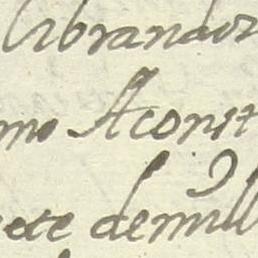 librandor
mo Aconst
ete demill